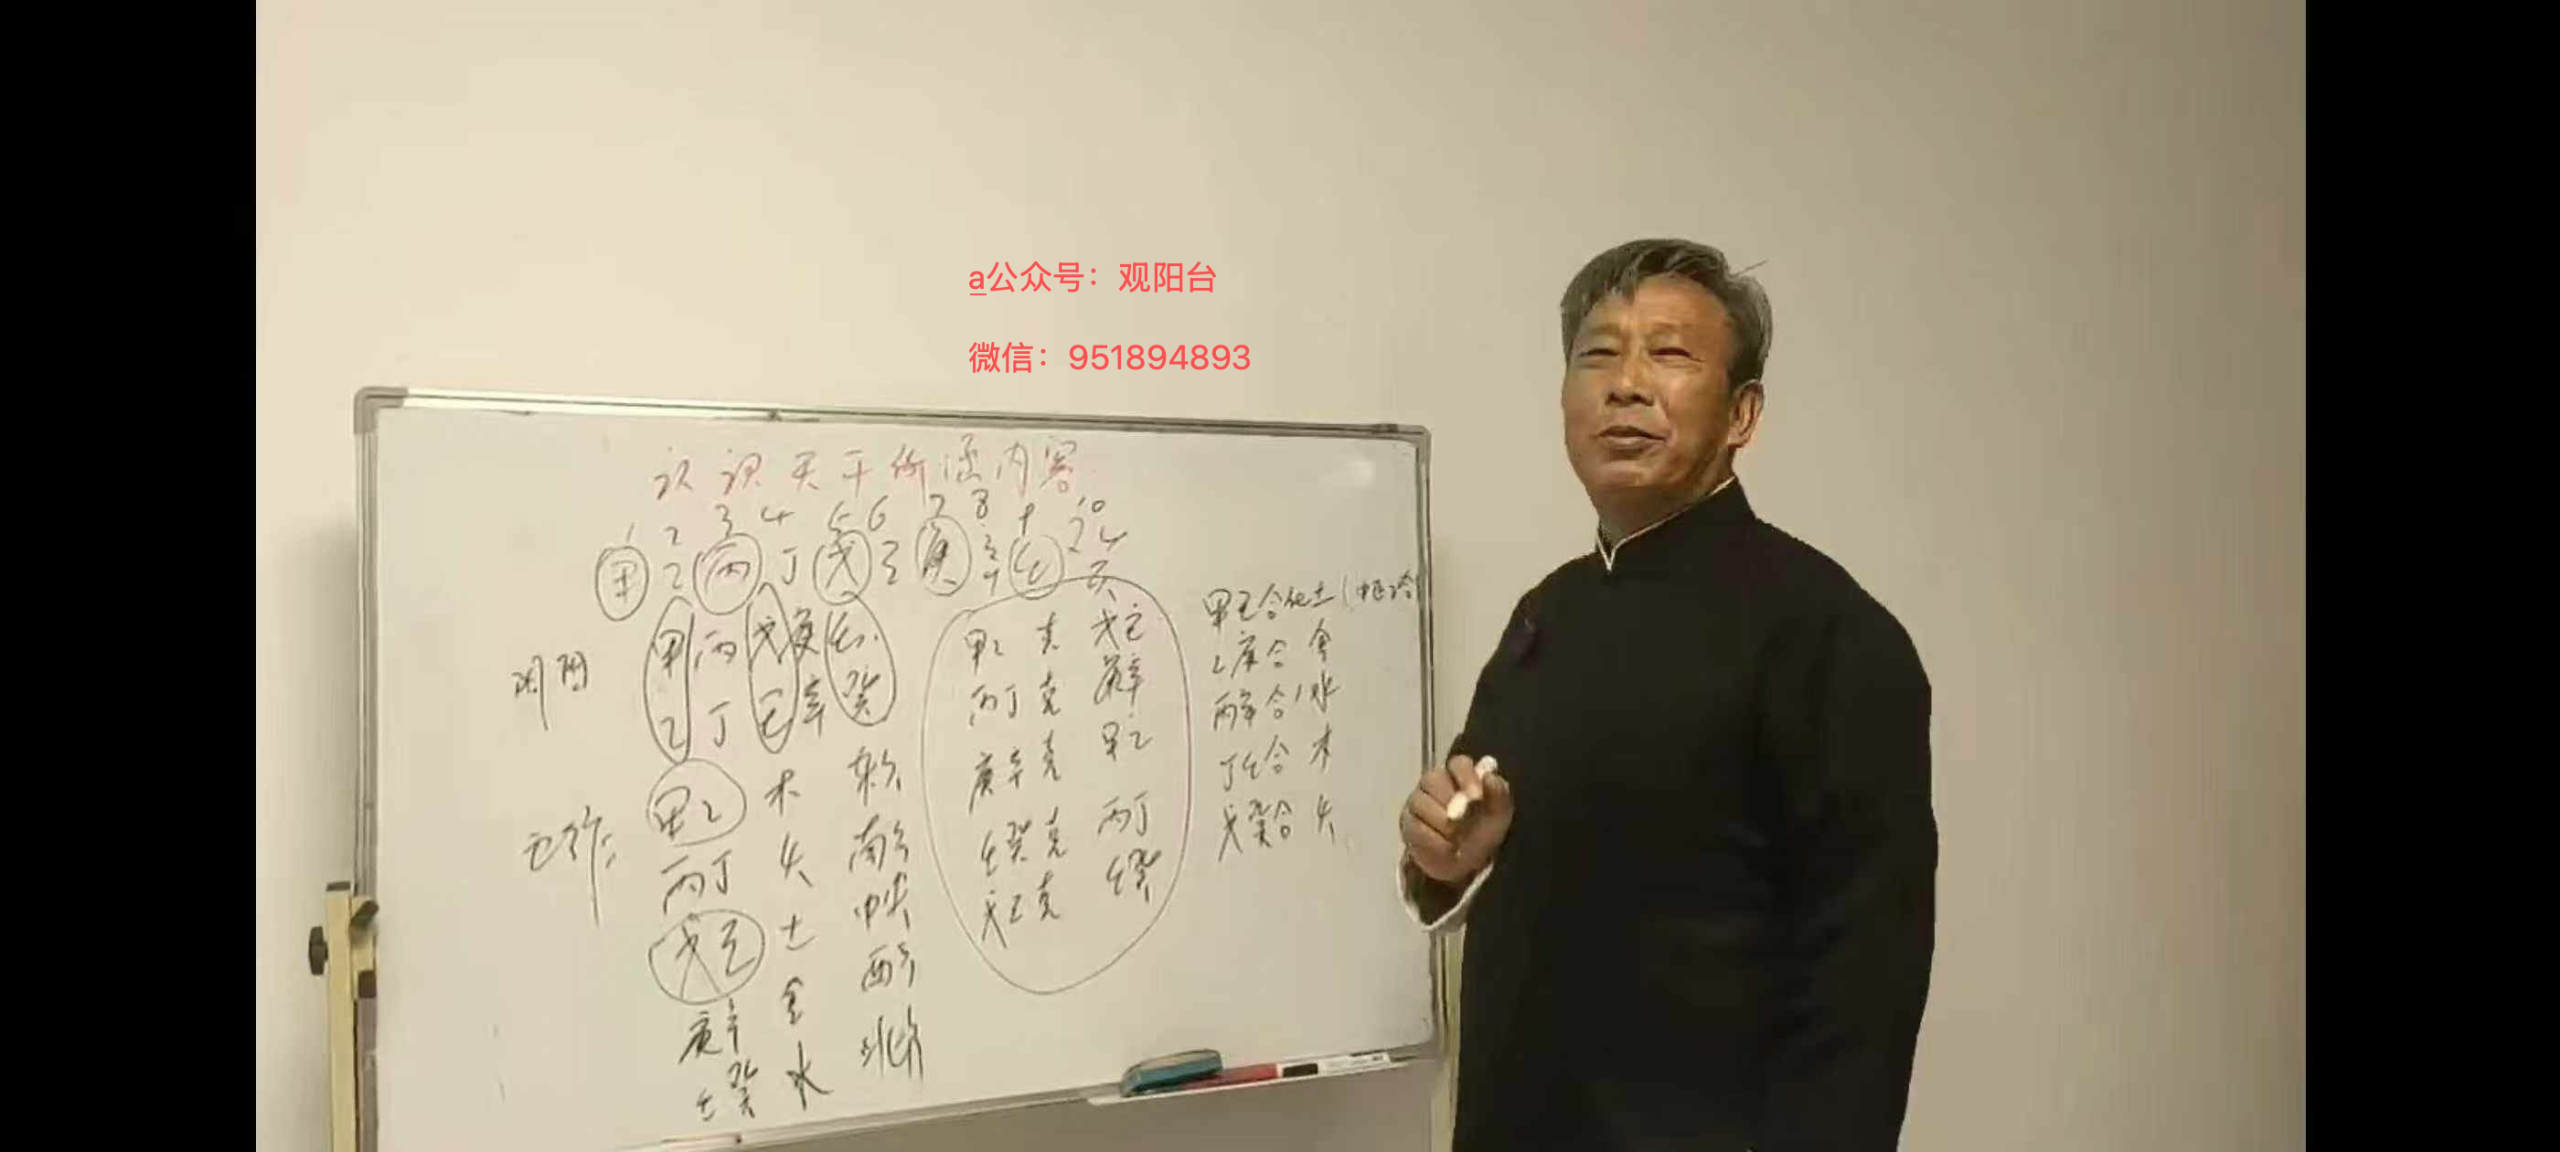 a公众号：观阳台
微信：951894893
认识天干所涵内容
1 2 3 4 5 6 7 8 9 10
甲 乙 丙 丁 戊 己 庚 辛 壬 癸
阴阳
甲 丙 戊 庚 壬
乙 丁 己 辛 癸
甲乙 木 东方
丙丁 火 南方
戊己 土 中央
庚辛 金 西方
壬癸 水 北方
甲乙 克 戊己
丙丁 克 庚辛
庚辛 克 甲乙
壬癸 克 丙丁
戊己 克 壬癸
甲己合化土
乙庚合 金
丙辛合 水
丁壬合 木
戊癸合 火